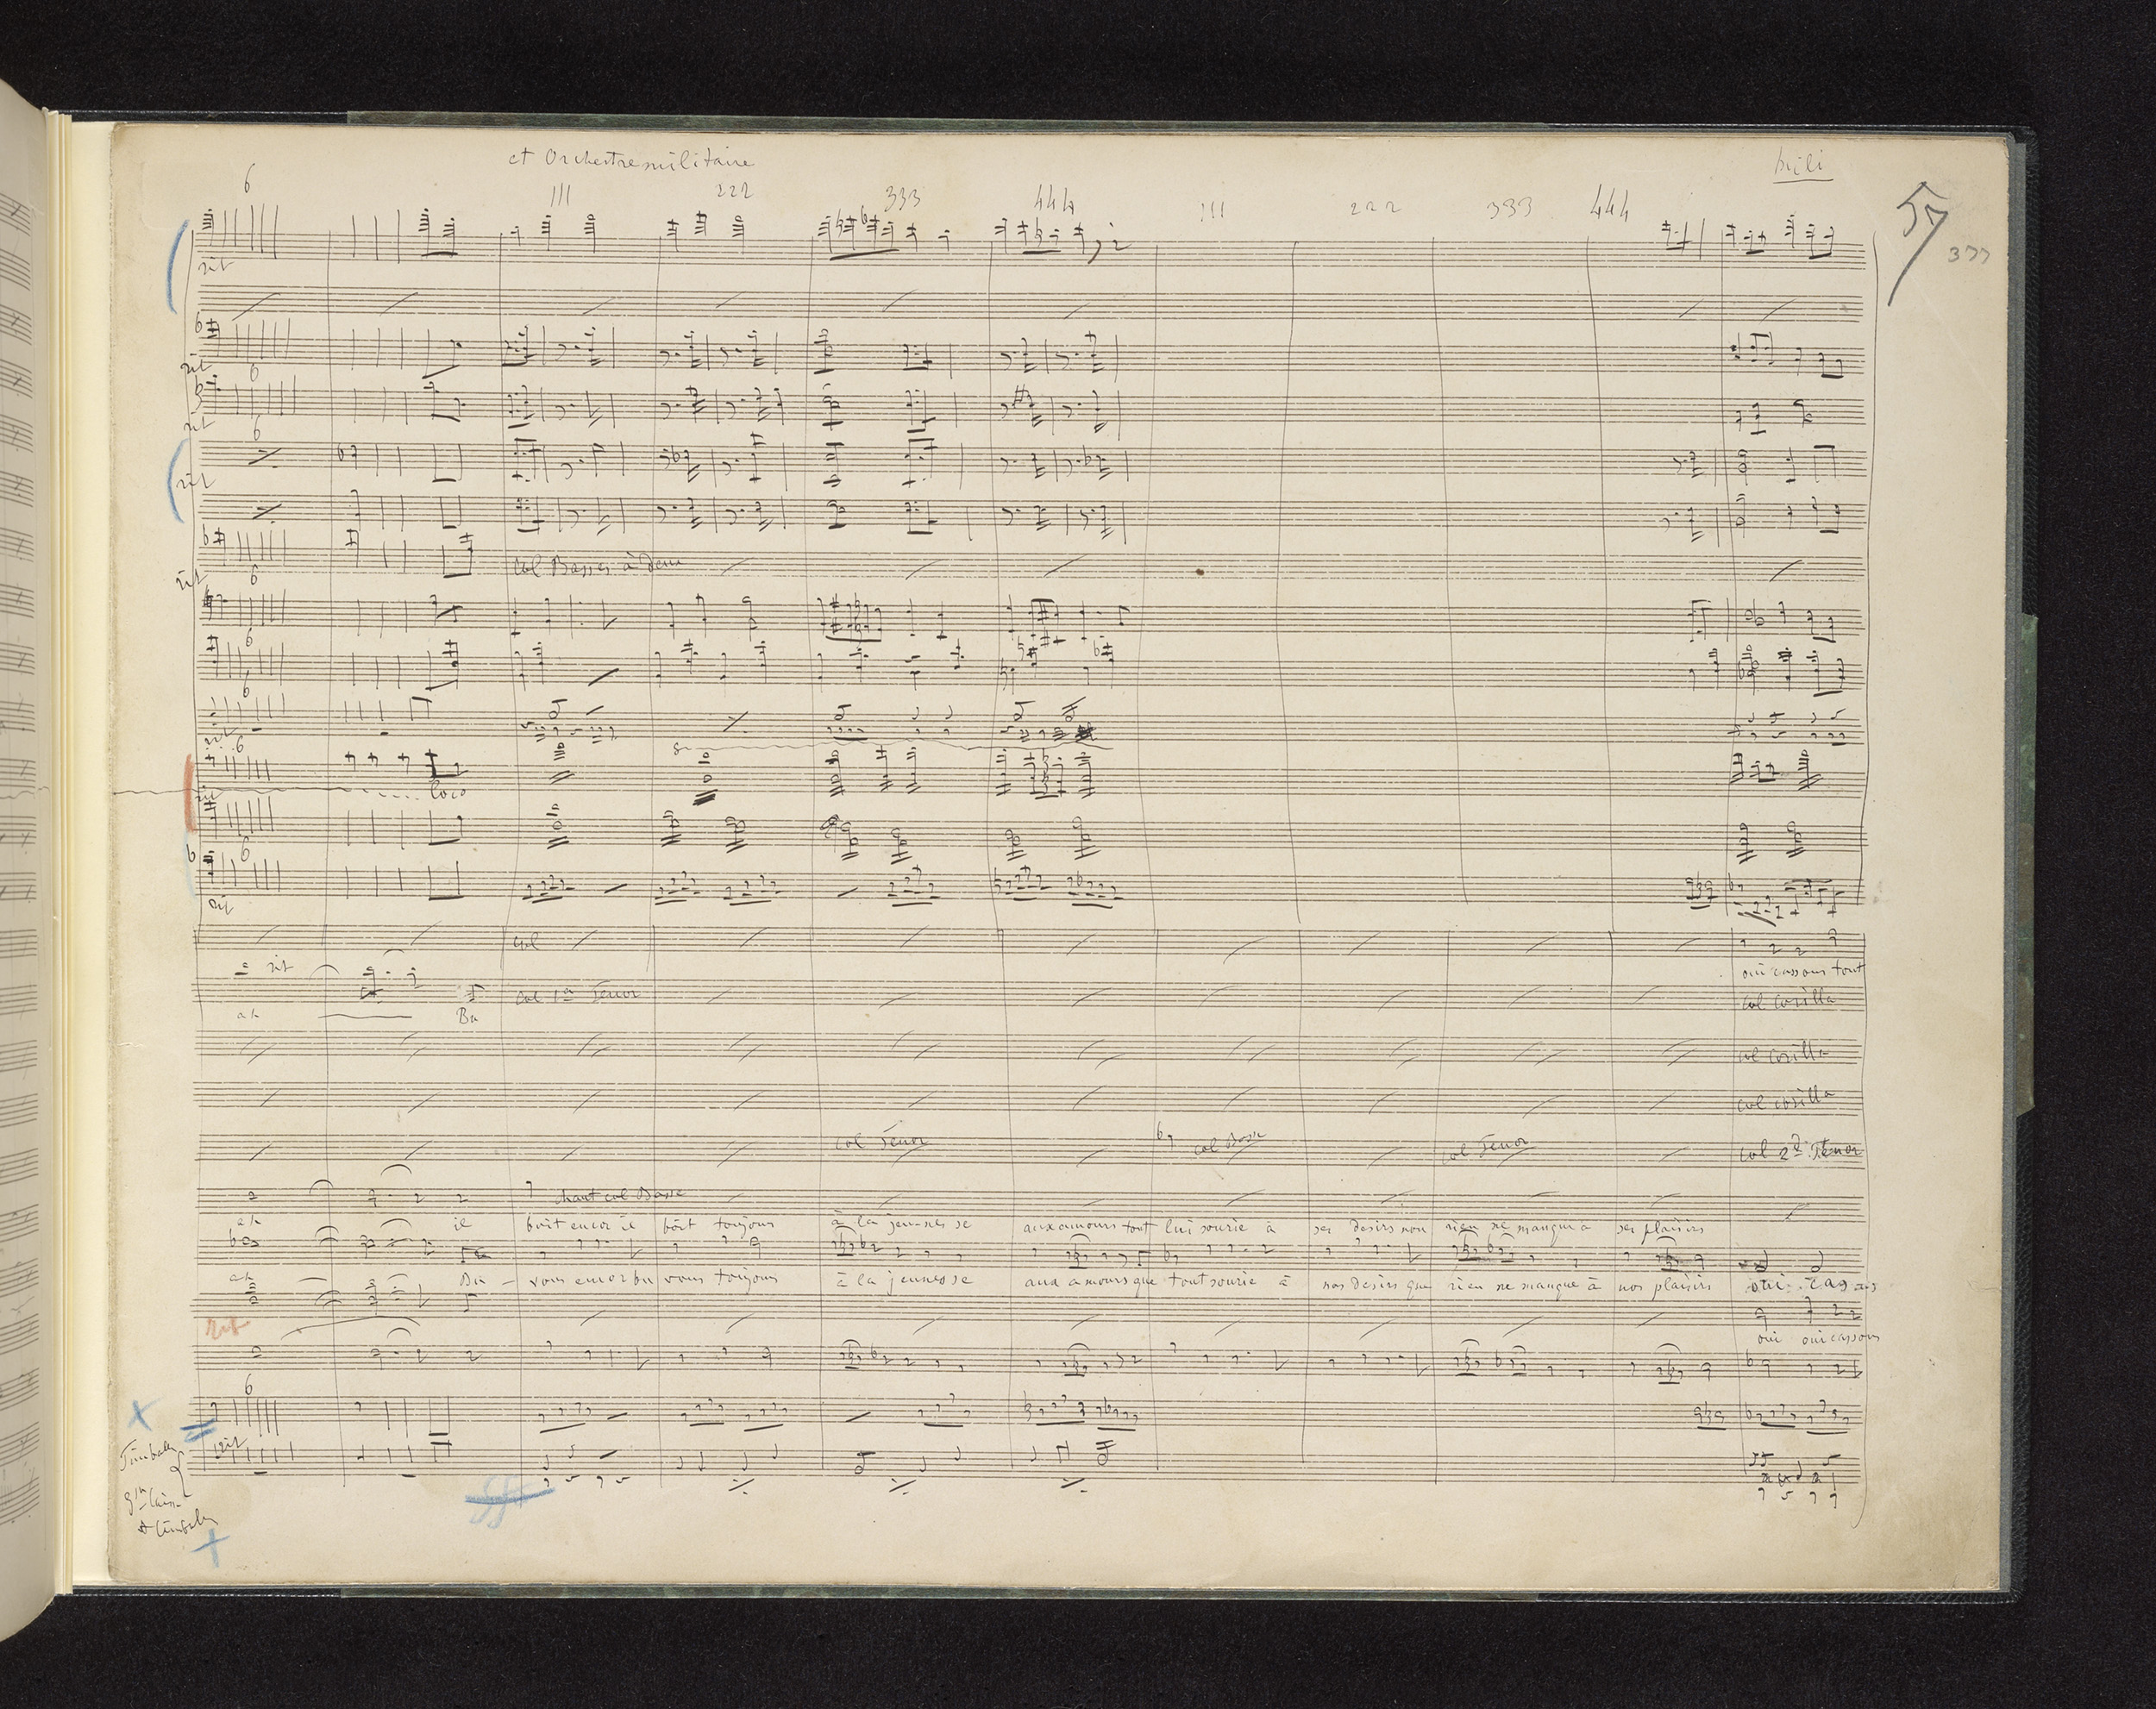 et Orchestre militaire
6 111 222 333 444 111 222 333 444
57
377
rit
6
rit
6
rit
6
rit
rit
col Basses à deux
6
6
6
rit
6
loco
6
rit
col
oui cassons tout
rit
col 1er Tenor
col corilla
ah Bu
col corilla
col corilla
col Tenor col Basse col Tenor col 2d Tenor
chant col Basse
ah il boit encor il boit toujours à la jeunesse aux amours tout lui sourie à ses desirs non rien ne manqua ses plaisirs
ah Bu - vons encor bu vons toujours à la jeunesse aux amours que tout sourie à nos desirs que rien ne manque à nos plaisirs oui
rit
oui oui cassons
6
Timbales
rit
gr Caisse
et Cimbales
fff